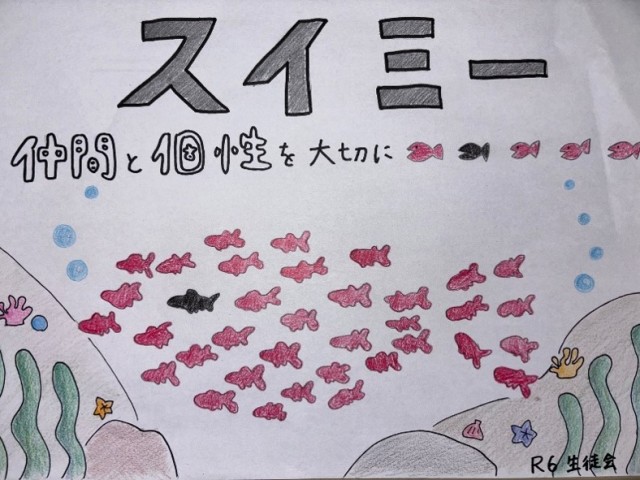 スイミー
仲間と個性を大切に
R6 生徒会